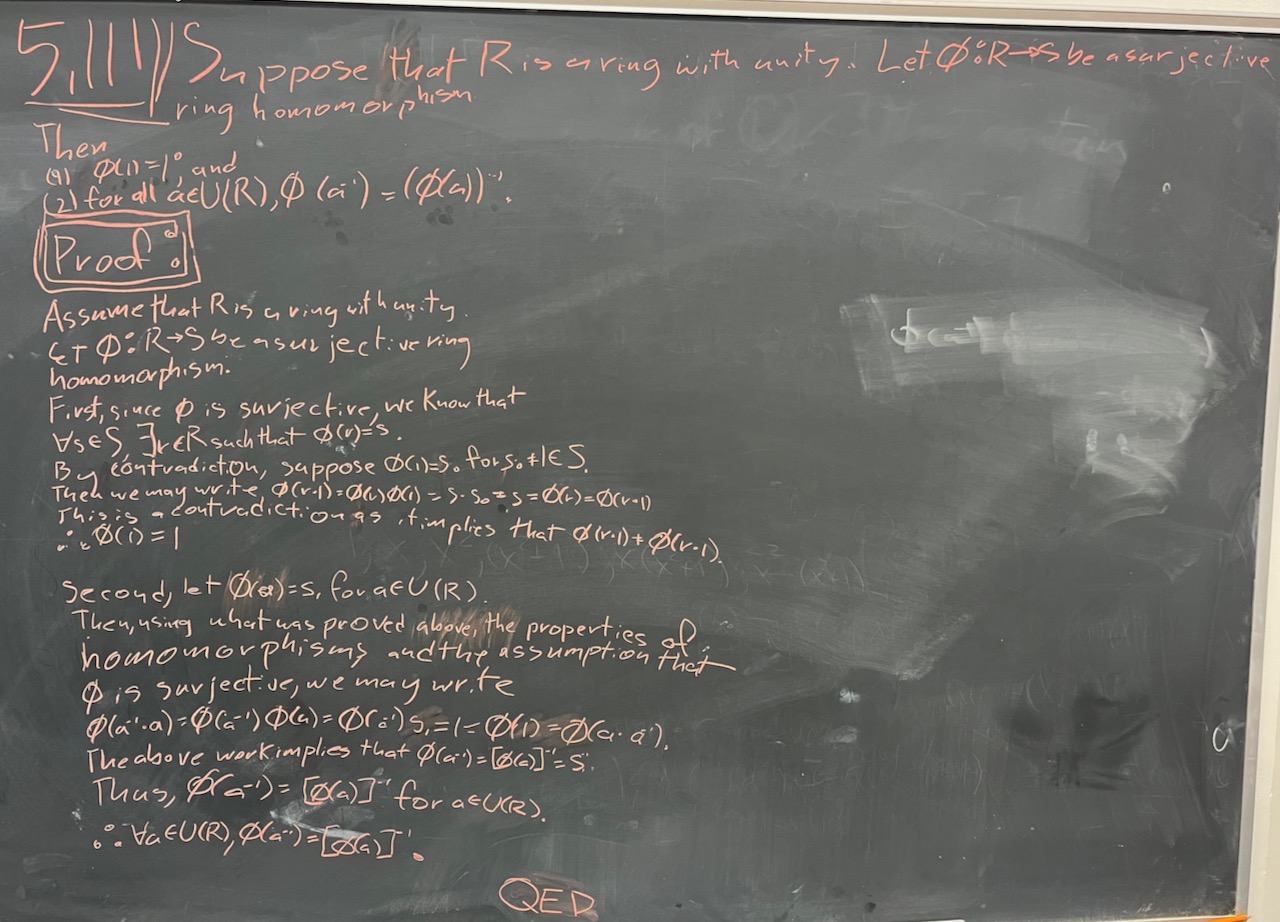 5.111) Suppose that R is a ring with unity. Let Φ:R→S be a surjective
ring homomorphism
Then
(1) Φ(1)=1; and
(2) for all a∈U(R), Φ(a⁻¹) = (Φ(a))⁻¹.
Proof:
Assume that R is a ring with unity.
Let Φ:R→S be a surjective ring
homomorphism.
First, since Φ is surjective, we know that
∀s∈S, ∃r∈R such that Φ(r)=s.
By contradiction, suppose Φ(1)=s₀ for s₀≠1∈S.
Then we may write, Φ(r·1)=Φ(r)Φ(1)=s·s₀≠s=Φ(r)=Φ(r·1)
This is a contradiction as it implies that Φ(r·1)≠Φ(r·1).
∴ Φ(1)=1
Second, let Φ(a)=s₁ for a∈U(R).
Then, using what was proved above, the properties of
homomorphisms and the assumption that
Φ is surjective, we may write
Φ(a⁻¹·a)=Φ(a⁻¹)Φ(a)=Φ(a⁻¹)s₁=1=Φ(1)=Φ(a·a⁻¹).
The above work implies that Φ(a⁻¹)=[Φ(a)]⁻¹=s₁⁻¹.
Thus, Φ(a⁻¹)=[Φ(a)]⁻¹ for a∈U(R).
∴ ∀a∈U(R), Φ(a⁻¹)=[Φ(a)]⁻¹.
QED